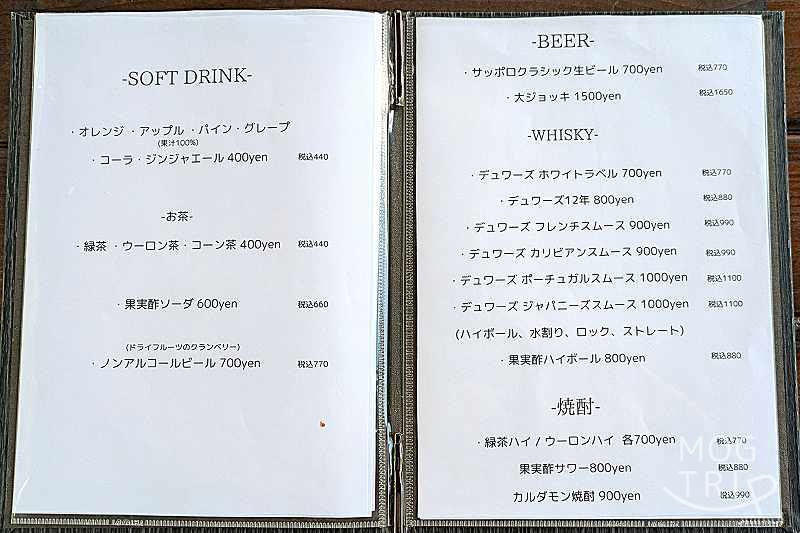 -SOFT DRINK-
・オレンジ ・アップル ・パイン・グレープ
(果汁100%)
・コーラ・ジンジャエール 400yen 税込440
-お茶-
・緑茶 ・ウーロン茶・コーン茶 400yen 税込440
・果実酢ソーダ 600yen 税込660
(ドライフルーツのクランベリー)
・ノンアルコールビール 700yen 税込770
-BEER-
・サッポロクラシック生ビール 700yen 税込770
・大ジョッキ 1500yen 税込1650
-WHISKY-
・デュワーズ ホワイトラベル 700yen 税込770
・デュワーズ12年 800yen 税込880
・デュワーズ フレンチスムース 900yen 税込990
・デュワーズ カリビアンスムース 900yen 税込990
・デュワーズ ポーチュガルスムース 1000yen 税込1100
・デュワーズ ジャパニーズスムース 1000yen 税込1100
(ハイボール、水割り、ロック、ストレート)
・果実酢ハイボール 800yen 税込880
-焼酎-
・緑茶ハイ / ウーロンハイ 各700yen 税込770
果実酢サワー800yen 税込880
カルダモン焼酎 900yen 税込990
MOG
TRIP